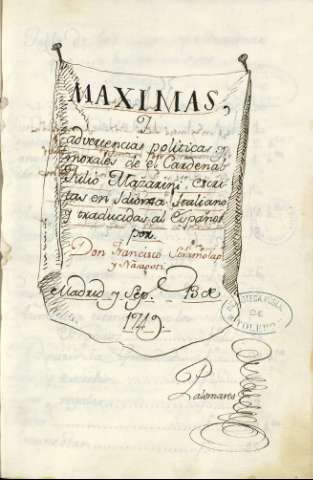 MAXIMAS,
Y
advertencias politicas, y
morales de el Cardenal
Julio Mazarini, escri
tas en Idioma Italiano,
y traducidas al Español
por
Don Francisco
y
Madrid y Sep. 13 de
1719.
DE
TOLEDO
Palomares